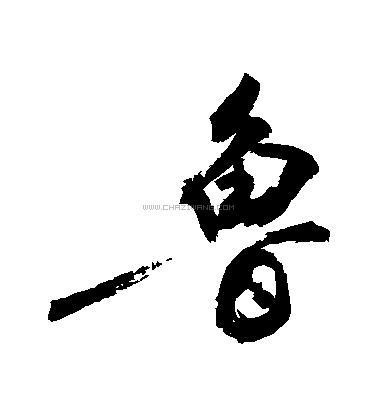 魯
WWW.CHAZIWANG.COM